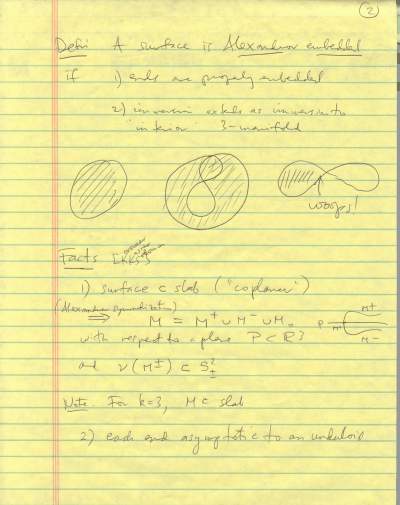 2
Defn: A surface is Alexandrov embedded
if 1) ends are properly embedded
2) immersion extends as immersion to
"interior" 3-manifold
woops!
Facts [KKS]
1) surface ⊂ slab ("coplanar")
(Alexandrov symmetrization)
⇒ M = M⁺ ∪ M⁻ ∪ M₀
P M⁺ M⁻
with respect to a plane P ⊂ ℝ³
and ν(M±) ⊂ S²±
Note: For k=3, M ⊂ slab
2) each end asymptotic to an unduloid